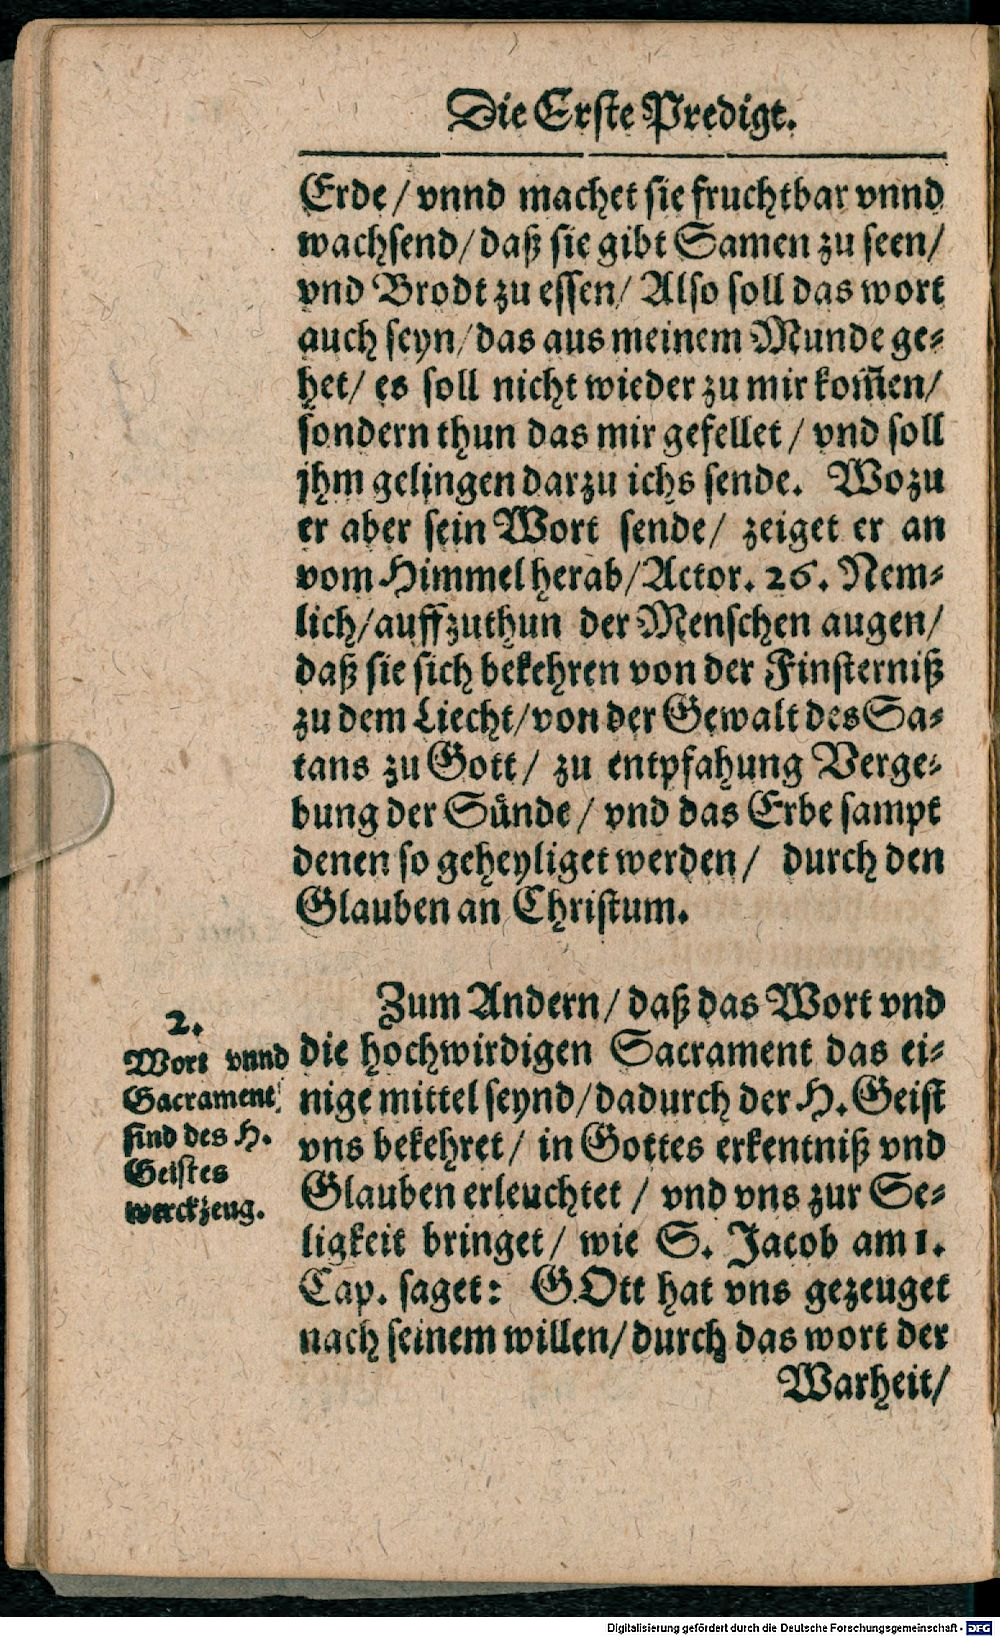 Die Erste Predigt.
Erde / vnnd machet sie fruchtbar vnnd
wachsend / daß sie gibt Samen zu seen /
vnd Brodt zu essen / Also soll das wort
auch seyn / das aus meinem Munde ge⸗
het / es soll nicht wieder zu mir kom̃en /
sondern thun das mir gefellet / vnd soll
jhm gelingen darzu ichs sende. Wozu
er aber sein Wort sende / zeiget er an
vom Himmel herab / Actor. 26. Nem⸗
lich / auffzuthun der Menschen augen /
daß sie sich bekehren von der Finsterniß
zu dem Liecht / von der Gewalt des Sa⸗
tans zu Gott / zu entpfahung Verge⸗
bung der Sünde / vnd das Erbe sampt
denen so geheyliget werden / durch den
Glauben an Christum.
Zum Andern / daß das Wort vnd
die hochwirdigen Sacrament das ei⸗
nige mittel seynd / dadurch der H. Geist
vns bekehret / in Gottes erkentniß vnd
Glauben erleuchtet / vnd vns zur Se⸗
ligkeit bringet / wie S. Jacob am 1.
Cap. saget: GOtt hat vns gezeuget
nach seinem willen / durch das wort der
Warheit /
2.
Wort vnnd
Sacrament
sind des H.
Geistes
werckzeug.
Digitalisierung gefördert durch die Deutsche Forschungsgemeinschaft - DFG